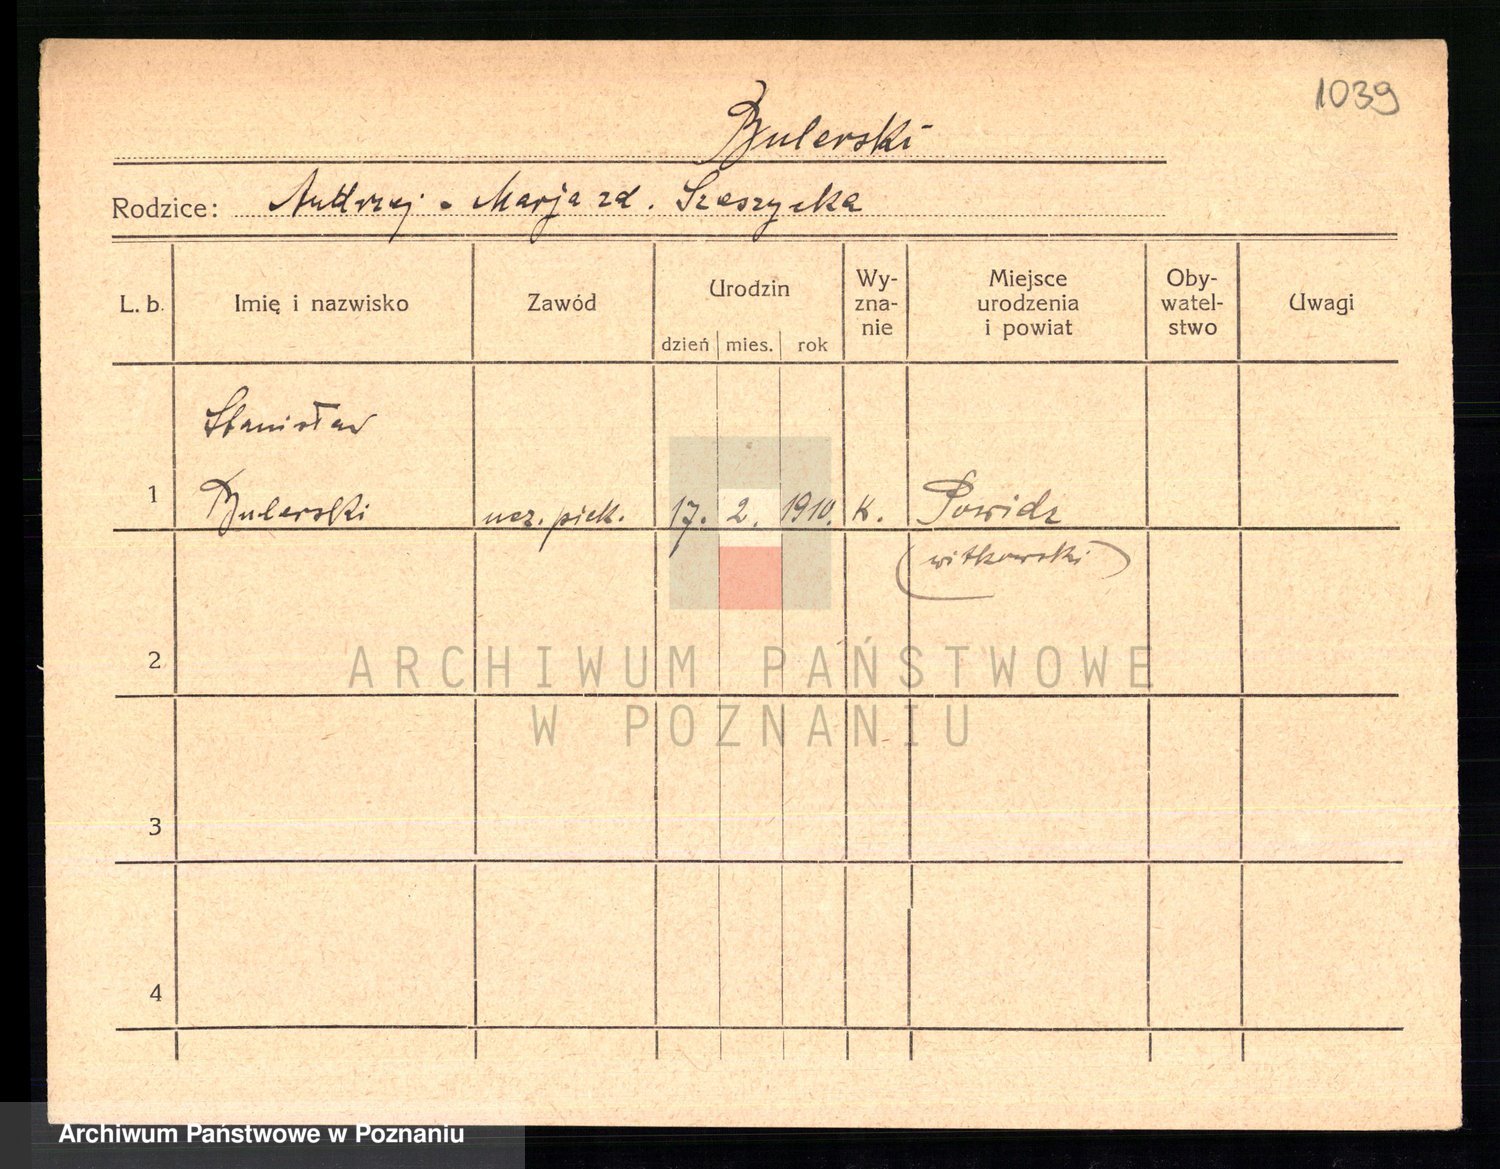 1039
Bulerski
Rodzice: Andrzej - Marja zd. Szeszycka
L. b.
Imię i nazwisko
Zawód
Urodzin
dzień mies. rok
Wy-
zna-
nie
Miejsce
urodzenia
i powiat
Oby-
watel-
stwo
Uwagi
Stanisław
1 Bulerski ucz. piek. 17. 2. 1910. k. Powidz
(witkowski)
2
3
4
ARCHIWUM PAŃSTWOWE
W POZNANIU
Archiwum Państwowe w Poznaniu